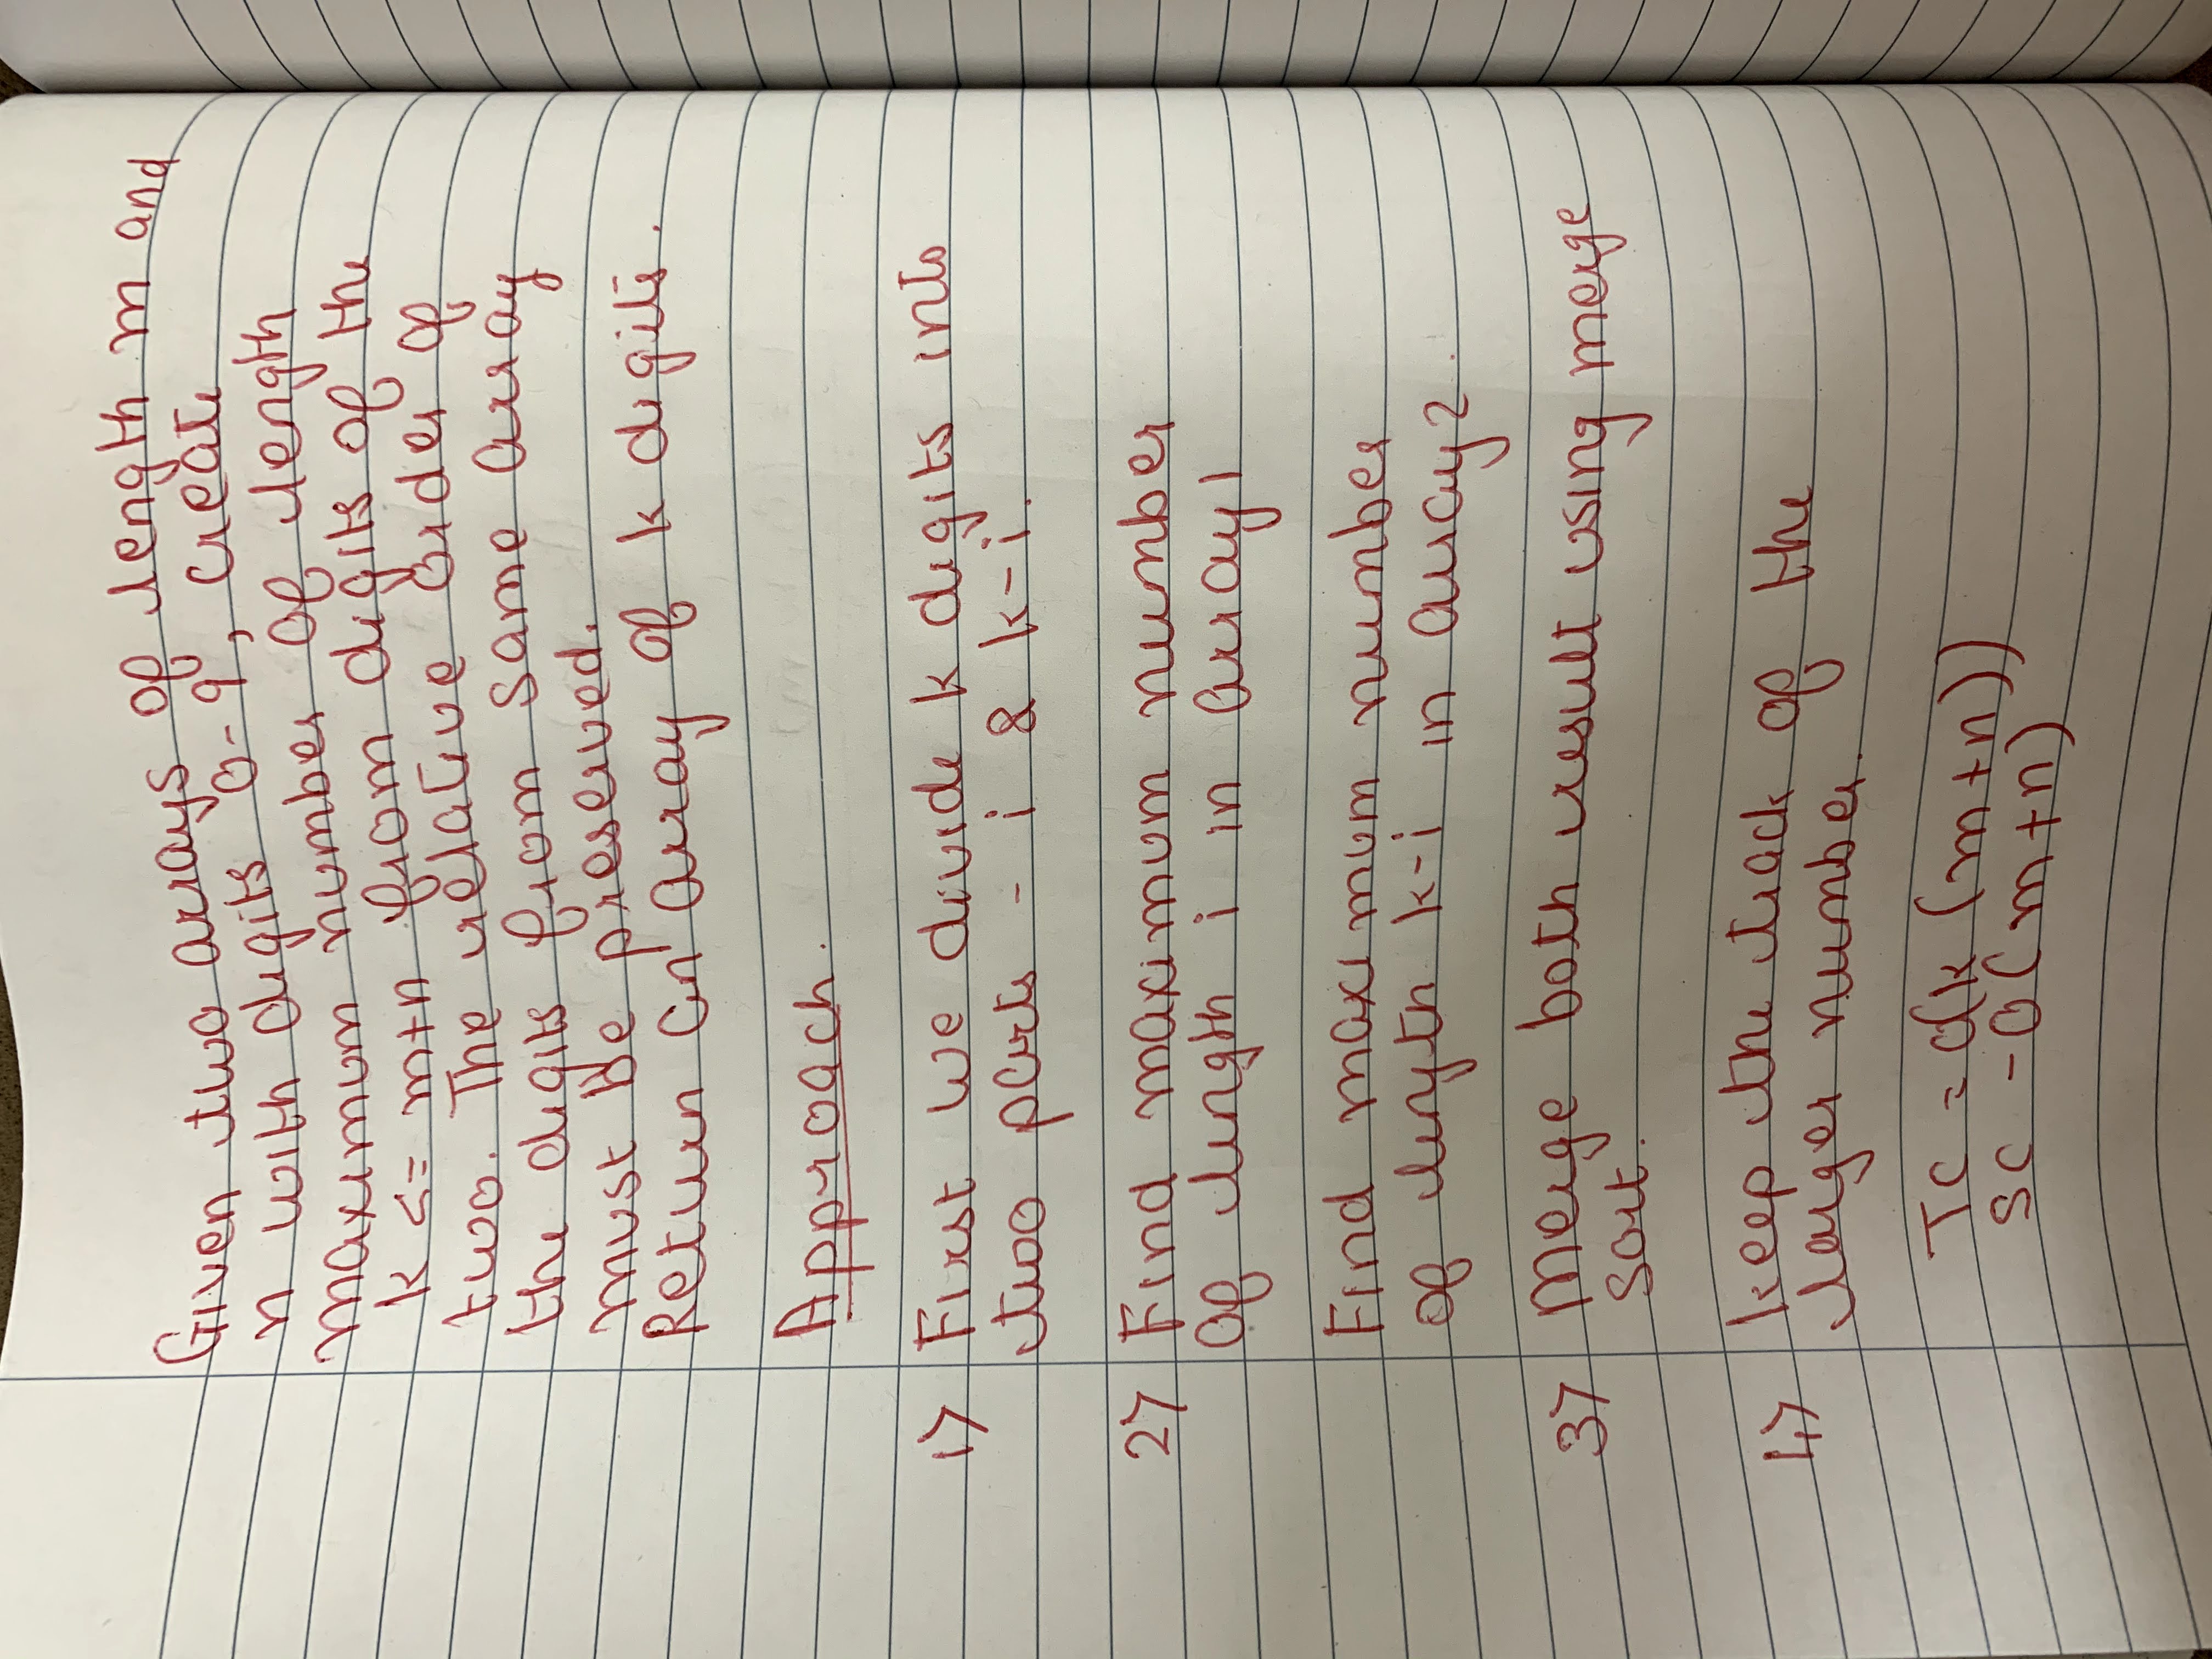 Given two arrays of length m and
n with digits 0-9, create
maximum number of length
k <= m+n from digits of the
two. The relative order of
the digits from same array
must be preserved.
Return an array of k digits.
Approach.
1> First we divide k digits into
two parts - i & k-i.
2> Find maximum number
of length i in array1
Find maximum number
of length k-i in array2.
3> Merge both result using merge
sort.
4> keep the track of the
larger number.
TC = O(k (m+n))
SC - O(m+n)